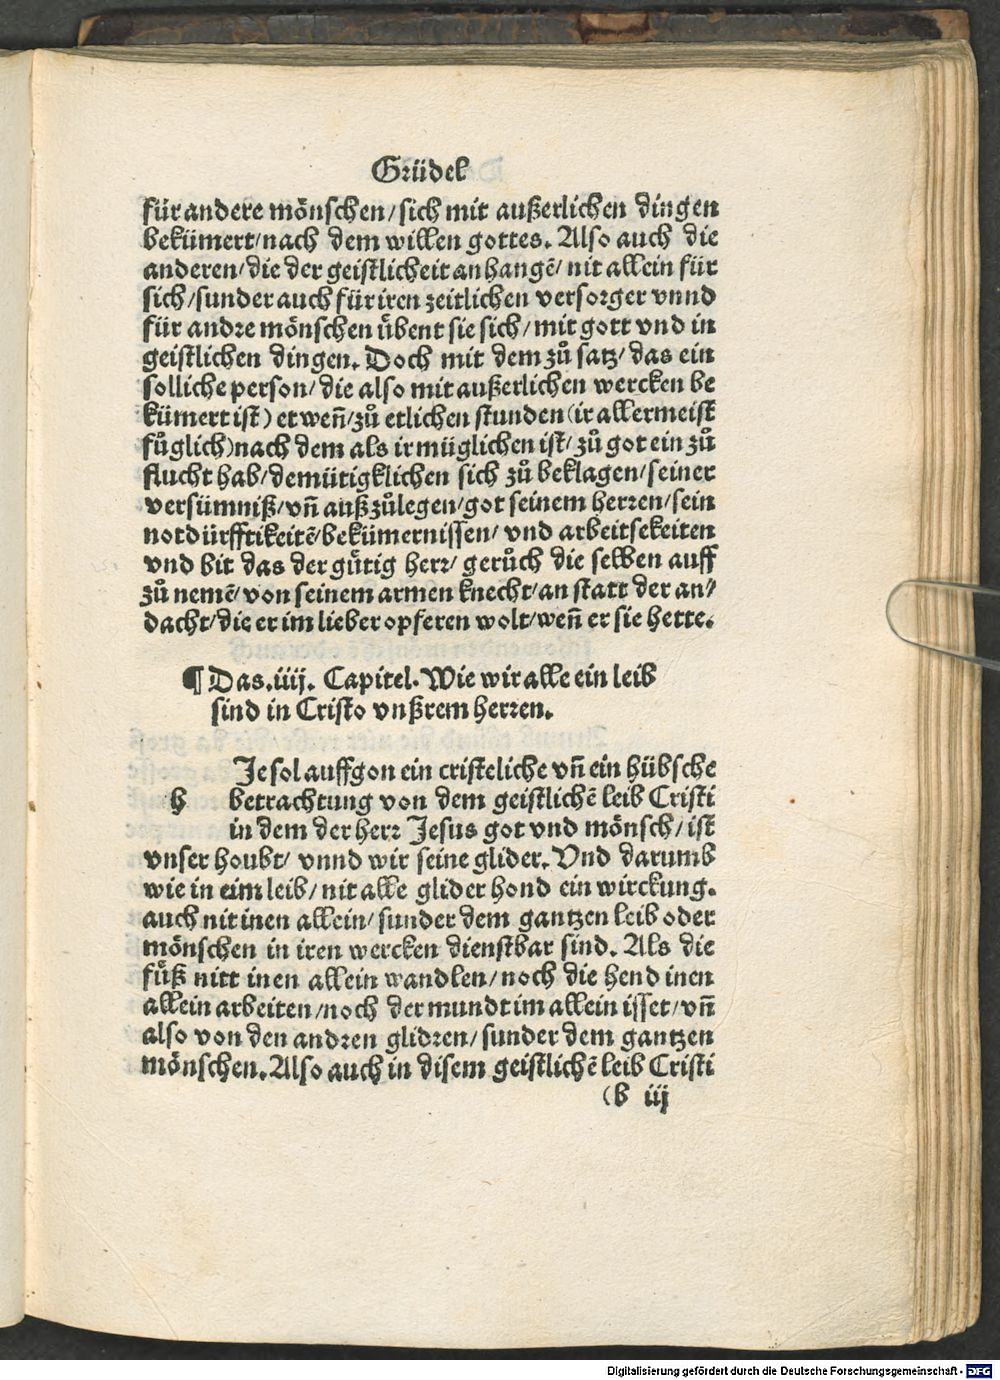 Grüdel
für andere mönschen/sich mit außerlichen dingen
bekümert/nach dem willen gottes. Also auch die
anderen/die der geistlicheit anhangē/nit allein für
sich/sunder auch für iren zeitlichen versorger vnnd
für andre mönschen übent sie sich/mit gott vnd in
geistlichen dingen. Doch mit dem zů satz/das ein
solliche person/die also mit außerlichen wercken be
kümert ist) etwen̄/zů etlichen stunden (ir allermeist
fůglich) nach dem als ir müglichen ist/zů got ein zů
flucht hab/demütigklichen sich zů beklagen/seiner
versümniß/vn̄ auß zůlegen/got seinem herren/sein
notdürfftikeitē/bekümernissen/vnd arbeitsekeiten
vnd bit das der gütig herr/gerůch die selben auff
zů nemē/von seinem armen knecht/an statt der an/
dacht/die er im lieber opferen wolt/wen̄ er sie hette.
¶ Das.iiij. Capitel. Wie wir alle ein leib
sind in Cristo vnßrem herren.
h Je sol auffgon ein cristeliche vn̄ ein hübsche
betrachtung von dem geistlichē leib Cristi
in dem der herr Jesus got vnd mönsch/ist
vnser houbt/vnnd wir seine glider. Vnd darumb
wie in eim leib/nit alle glider hond ein wirckung.
auch nit inen allein/sunder dem gantzen leib oder
mönschen in iren wercken dienstbar sind. Als die
füß nitt inen allein wandlen/noch die hend inen
allein arbeiten/noch der mundt im allein isset/vn̄
also von den andren glidren/sunder dem gantzen
mönschen. Also auch in disem geistlichē leib Cristi
(b iij
Digitalisierung gefördert durch die Deutsche Forschungsgemeinschaft - DFG